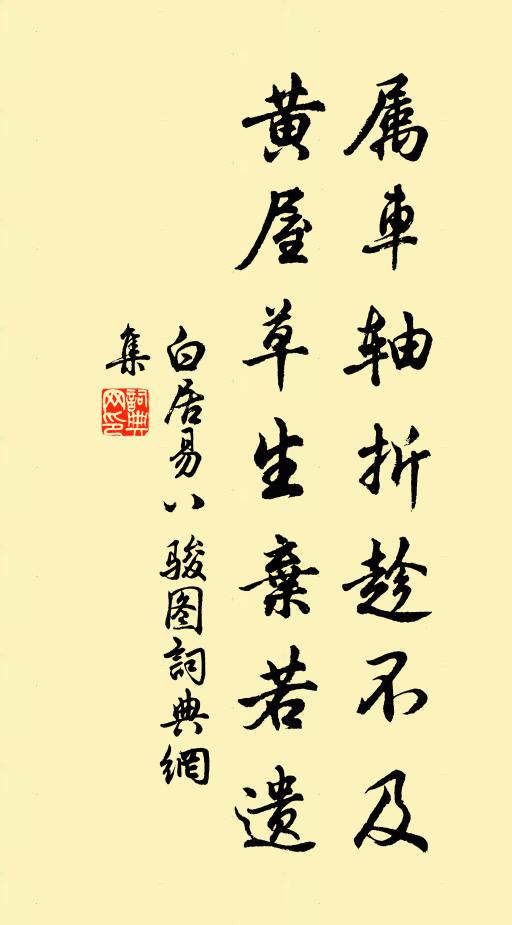 属车轴折趁不及
黄屋草生弃若遗
白居易八骏图詞典網
集
詞典
网印